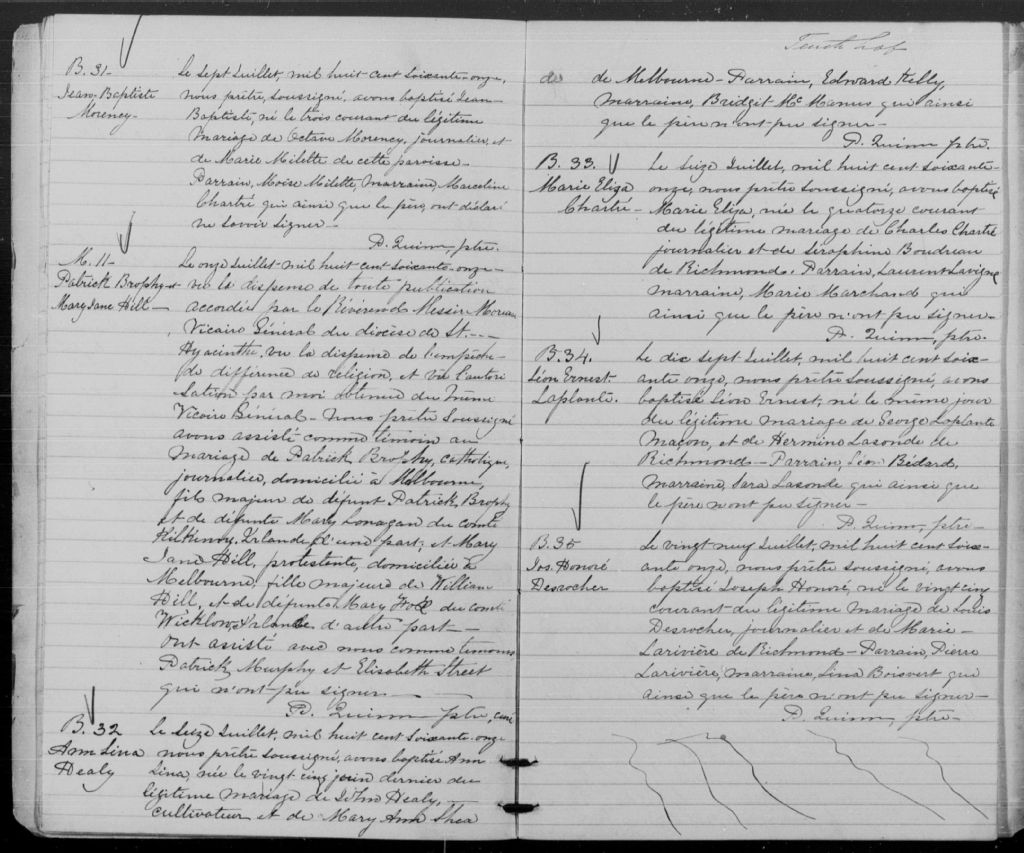 B. 31-
Jean-Baptiste
Morency-
Le sept Juillet, mil huit cent soixante-onze,
nous prêtre, soussigné, avons baptisé Jean-
Baptiste, né le trois courant du légitime
mariage de Octave Morency, journalier, et
de Marie Milette de cette paroisse-
Parrain, Moïse Milette, marraine, Marceline
Chartré qui ainsi que le père, ont déclaré
ne savoir signer-
P. Quinn, ptre.
M. 11-
Patrick Brophy et
Mary Jane Hill-
Le onze Juillet mil huit cent soixante-onze-
vu la dispense de toute publication
accordée par le Révérend Messire Moreau
Vicaire Général du diocèse de St.---
Hyacinthe, vu la dispense de l'empêche-
de différence de religion, et vu l'autori
sation par moi obtenue du même
Vicaire Général- Nous prêtre soussigné
avons assisté comme témoin au
mariage de Patrick Brophy, catholique,
journalier, domicilié à Melbourne,
fils majeur de défunt Patrick Brophy
et de défunte Mary Lonagan du comté
Kilkenny, Irlande d'une part; et Mary
Jane Hill, protestante, domiciliée à
Melbourne, fille majeure de William
Hill, et de défunte Mary du comté
Wicklow, Irlande d'autre part-
Ont assisté avec nous comme témoins
Patrick Murphy et Elisabeth Street
qui n'ont pu signer-
P. Quinn ptre, curé
B. 32
Ann Lina
Healy
Le seize Juillet, mil huit cent soixante-onze
nous prêtre soussigné, avons baptisé Ann
Lina, née le vingt cinq juin dernier du
légitime mariage de John Healy,
cultivateur et de Mary Ann Shea
Tenth Leaf
de de Melbourne- Parrain, Edward Kelly,
marraine, Bridget McManus qui ainsi
que le père n'ont pu signer-
P. Quinn, ptre.
B. 33.
Marie Eliza
Chartré-
Le seize Juillet, mil huit cent soixante-
onze, nous prêtre soussigné, avons baptisé
Marie Eliza, née le quatorze courant
du légitime mariage de Charles Chartré
journalier et de Séraphine Boudreau
de Richmond. Parrain, Laurent Lavigne
marraine, Marie Marchand qui
ainsi que le père n'ont pu signer-
P. Quinn, ptre.
B. 34.
Léon Ernest
Laplante.
Le dix sept Juillet, mil huit cent soix-
ante onze, nous prêtre soussigné, avons
baptisé Léon Ernest, né le même jour
du légitime mariage de George Laplante
maçon, et de Hermine Lasonde de
Richmond- Parrain, Léon Bédard,
marraine, Sara Lasonde qui ainsi que
le père n'ont pu signer-
P. Quinn, ptre-
B. 35
Jos. Honoré
Desrocher
Le vingt neuf Juillet, mil huit cent soix-
ante onze, nous prêtre soussigné, avons
baptisé Joseph Honoré, né le vingt cinq
courant du légitime mariage de Louis
Desrocher, journalier et de Marie-
Larivière de Richmond- Parrain, Pierre
Larivière, marraine, Lina Boisvert qui
ainsi que le père n'ont pu signer-
P. Quinn, ptre-